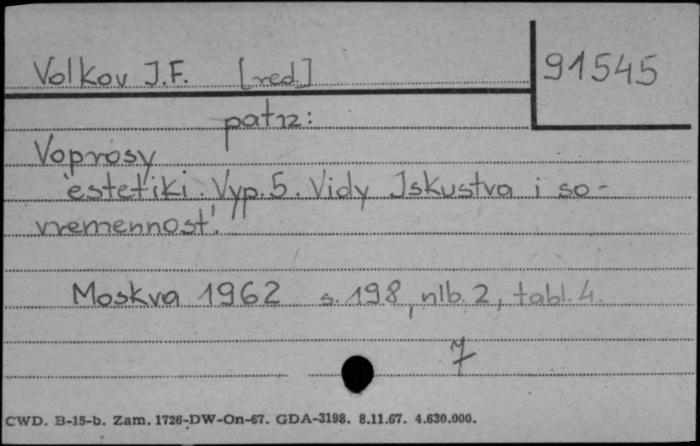 Volkov J.F. [red.] 91545
patrz:
Voprosy
estetiki. Vyp. 5. Vidy Jskustva i so-
vremennost'.
Moskva 1962 s. 198, nlb. 2, tabl. 4.
7
CWD. B-15-b. Zam. 1726-DW-On-67. GDA-3198. 8.11.67. 4.630.000.